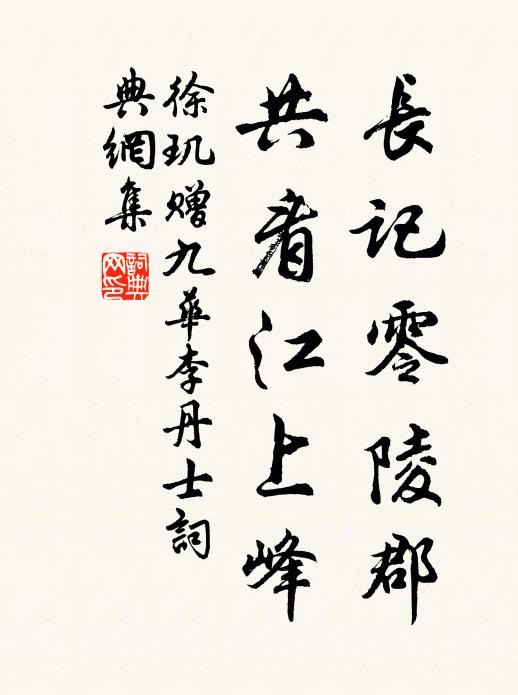 長记零陵郡
共看江上峰
徐玑赠九華李丹士詞
典網集
詞典
网印